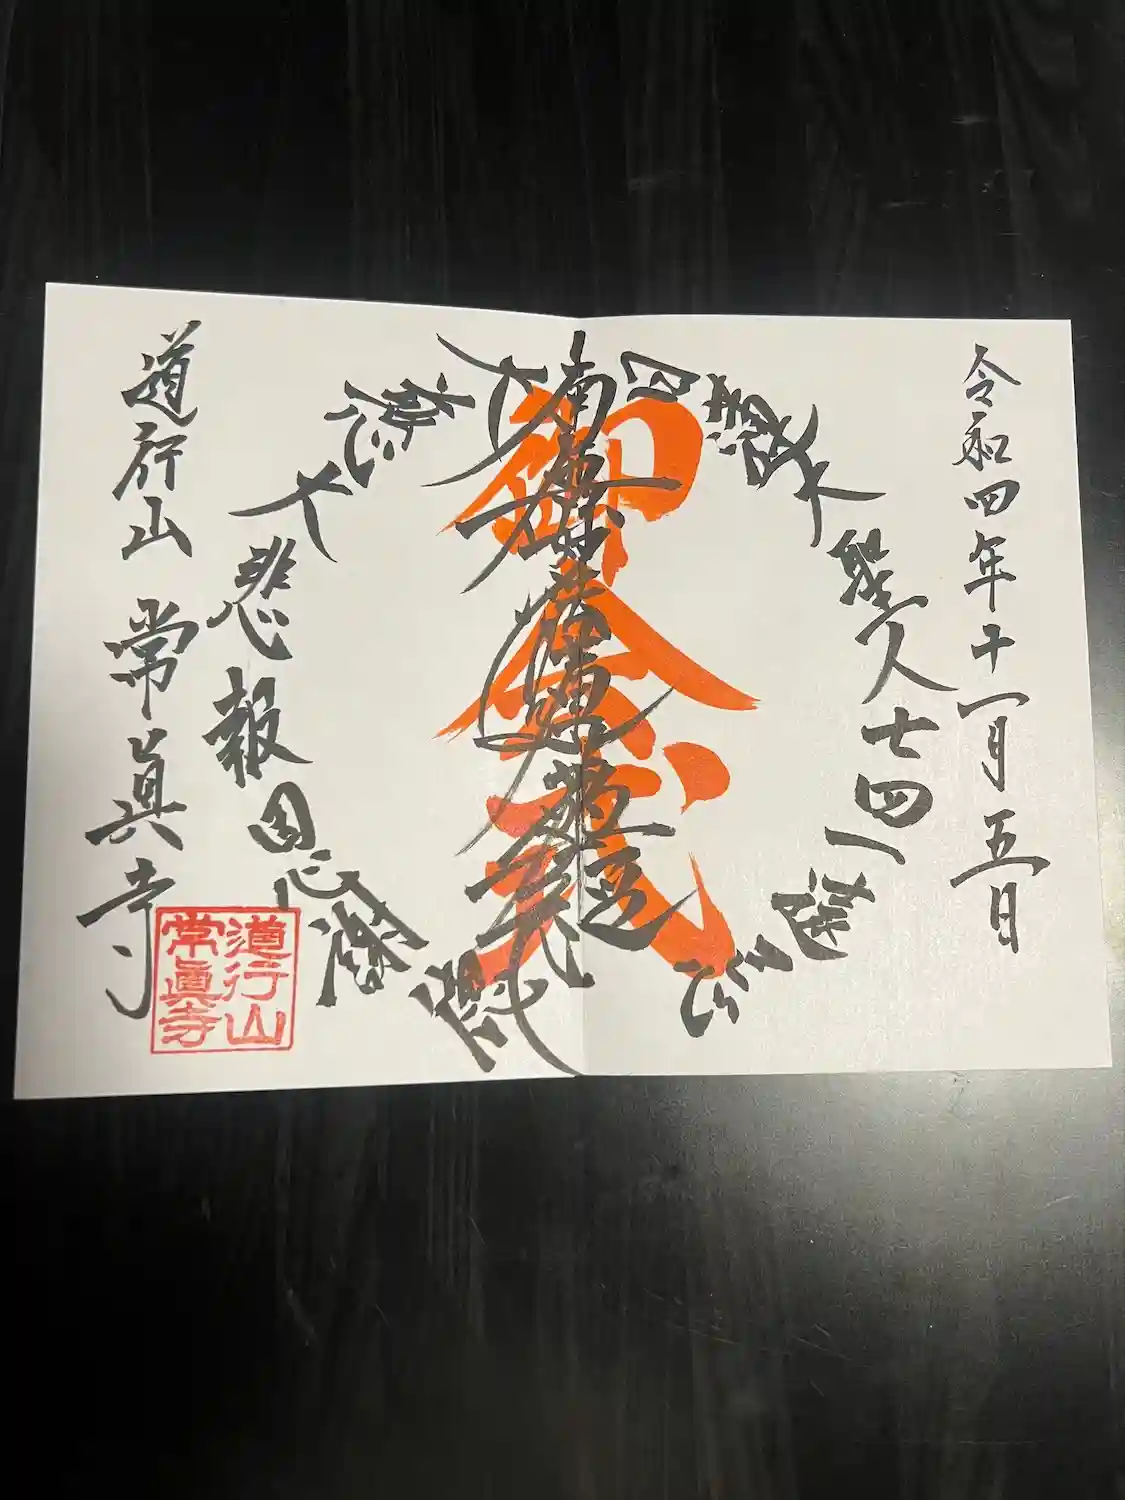 令和四年十一月五日
日蓮大聖人七四一遠忌
御会式
南無妙法蓮華経
大慈大悲報恩
道行山 常眞寺
道行山
常眞寺